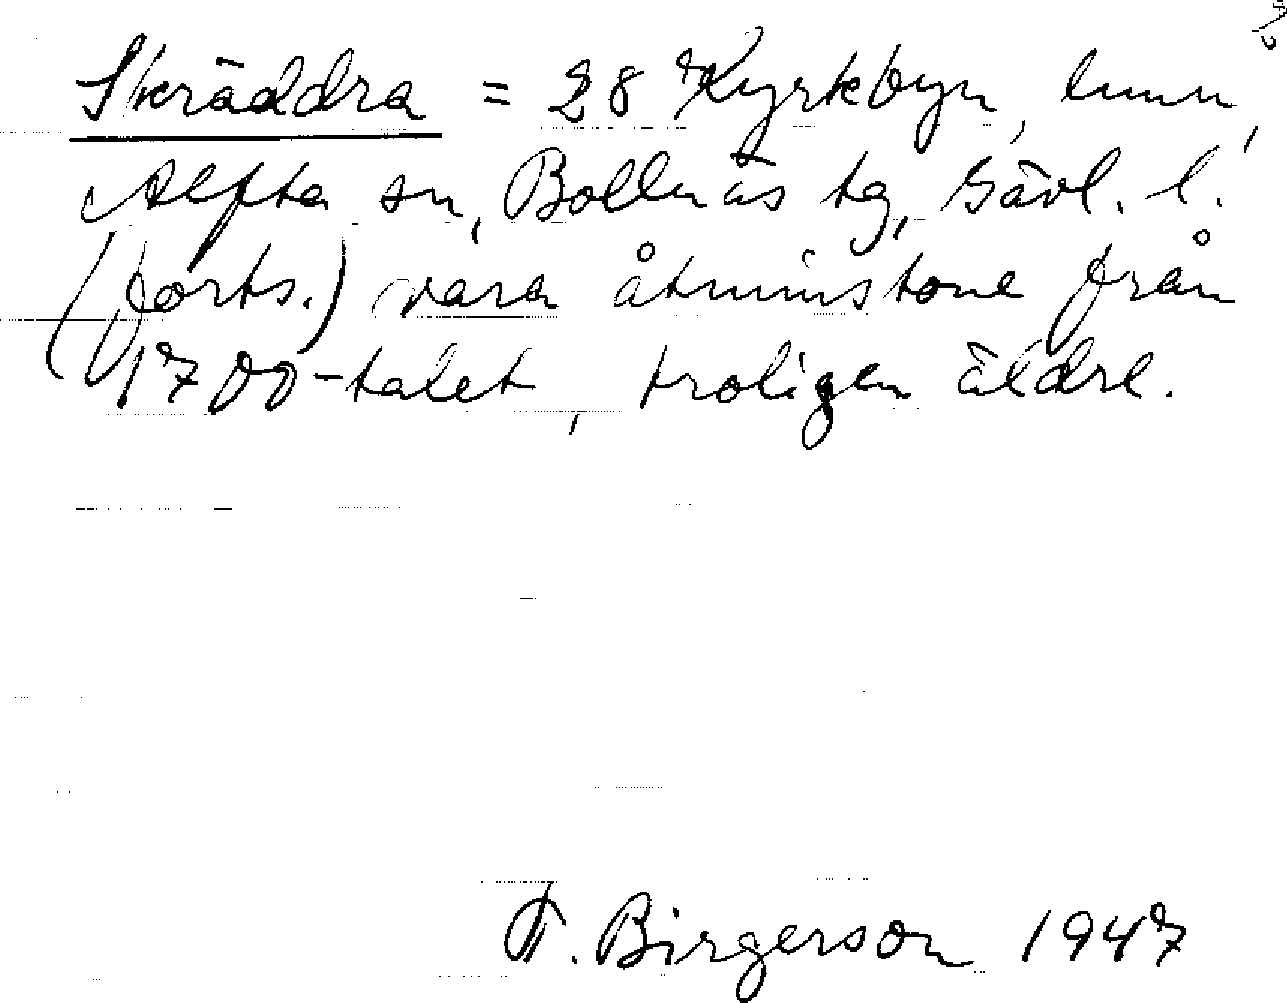 Skräddra = 28 Kyrkbyn, hmn,
Alfta sn, Bollnäs tg, Gävl. l.
(forts.) vara åtminstone från
1700-talet, troligen äldre.
T. Birgerson 1947